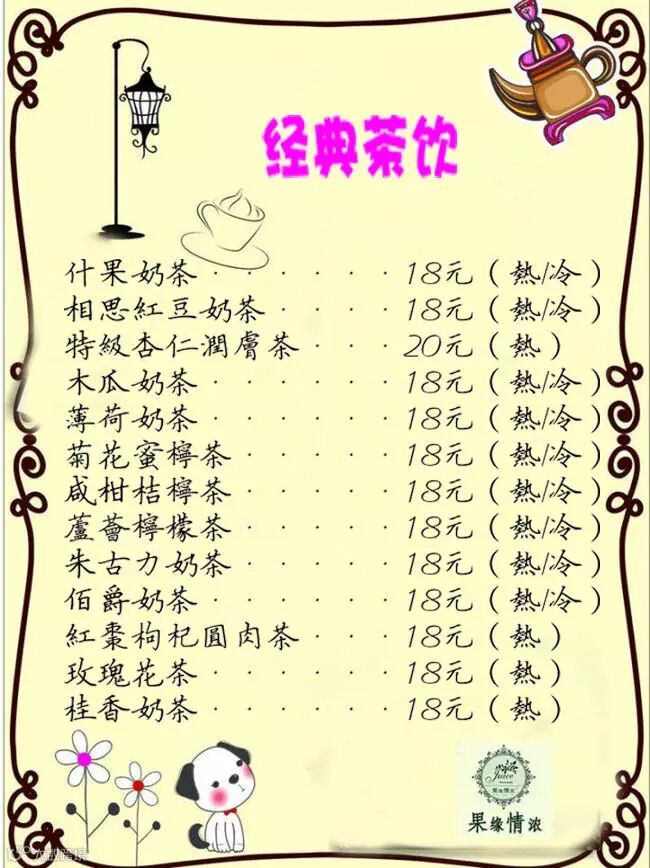 经典茶饮
什果奶茶······18元(熱/冷)
相思紅豆奶茶····18元(熱/冷)
特級杏仁潤膚茶···20元(熱)
木瓜奶茶······18元(熱/冷)
薄荷奶茶······18元(熱/冷)
菊花蜜檸茶·····18元(熱/冷)
咸柑桔檸茶·····18元(熱/冷)
蘆薈檸檬茶·····18元(熱/冷)
朱古力奶茶·····18元(熱/冷)
伯爵奶茶······18元(熱/冷)
紅棗枸杞圓肉茶···18元(熱)
玫瑰花茶······18元(熱)
桂香奶茶······18元(熱)
Juice
果缘情浓
果缘情浓